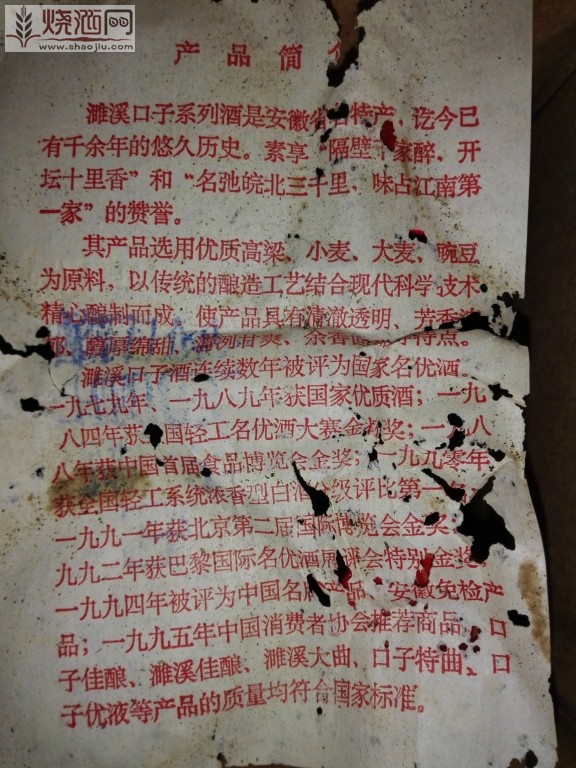 烧酒网
www.shaojiu.com
产品简
濉溪口子系列酒是安徽省名特产，讫今已
有千余年的悠久历史。素享“隔壁千家醉、开
坛十里香”和“名弛皖北三千里、味占江南第
一家”的赞誉。
其产品选用优质高粱、小麦、大麦、豌豆
为原料，以传统的酿造工艺结合现代科学技术
精心酿制而成，使产品具有清澈透明、芳香
郁、醇厚绵甜、清冽甘爽、余香 特点。
濉溪口子酒连续数年被评为国家名优酒，
一九七九年、一九八九年获国家优质酒；一九
八四年获 国轻工名优酒大赛金杯奖；一九八
八年获中国首届食品博览会金奖；一九九零年
获全国轻工系统浓香型白酒 级评比第
一九九一年获北京第二届国际博览会金奖；
九九二年获巴黎国际名优酒展评会特别金奖，
一九九四年被评为中国名牌产品、安徽免检产
品；一九九五年中国消费者协会推荐商品。口
子佳酿、濉溪佳酿、濉溪大曲、口子特曲、口
子优液等产品的质量均符合国家标准。